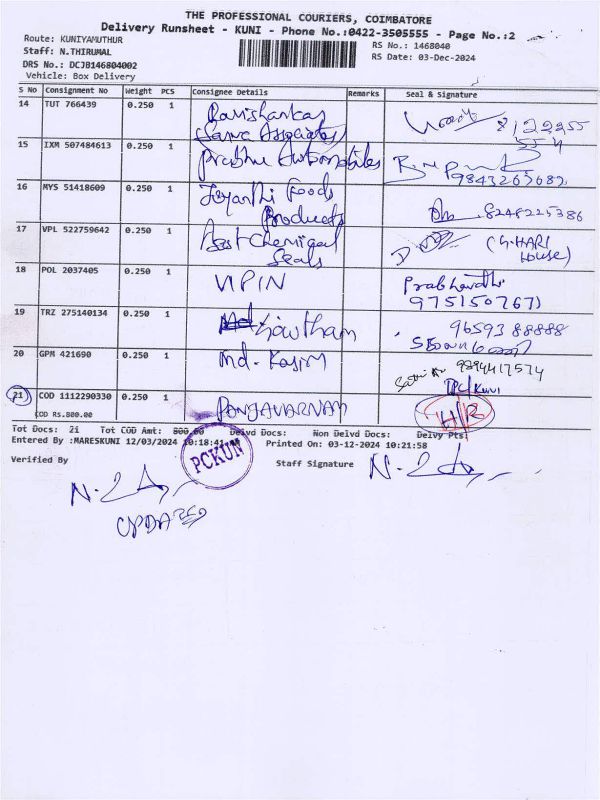 THE PROFESSIONAL COURIERS, COIMBATORE
Delivery Runsheet - KUNI - Phone No.:0422-3505555 - Page No.:2
Route: KUNIYAMUTHUR RS No.: 1468040
Staff: N.THIRUMAL RS Date: 03-Dec-2024
DRS No.: DCJB146804002
Vehicle: Box Delivery
S No Consignment No Weight PCS Consignee Details Remarks Seal & Signature
14 TUT 766439 0.250 1 Ravishankar
15 IXM 507484613 0.250 1 Prabhu Automobiles
9843265682
16 MYS 51418609 0.250 1 Jayanthi Foods
Products 8248225386
17 VPL 522759642 0.250 1 Best Chemical (G.HARI
Seals House)
18 POL 2037405 0.250 1 VIPIN Prabhavathi
9751507671
19 TRZ 275140134 0.250 1 Gowtham 9659388888
20 GPM 421690 0.250 1 Md. Kasim 9894417574
TPC/KUNI
21 COD 1112290330 0.250 1 PONJAVARNAM H/R
COD RS.800.00
Tot Docs: 21 Tot COD Amt: 800.00 Delvd Docs: Non Delvd Docs: Delvy Pts:
Entered By :MARESKUNI 12/03/2024 10:18:41 Printed On: 03-12-2024 10:21:58
PCKUN
Verified By Staff Signature
UPDATED